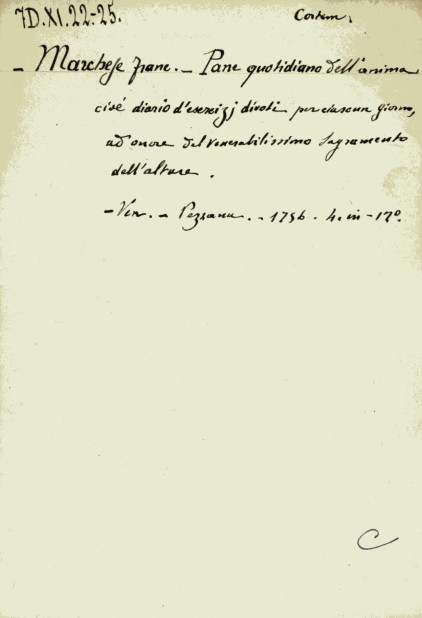 7D.XI.22-25.
- Marchese Franc. - Pane quotidiano dell'anima
cioé diario d'esercizj divoti per ciascun giorno,
ad onore del Venerabilissimo Sagramento
dell'altare.
- Ven. - Pezzana. - 1756. 4. in - 12º.
C